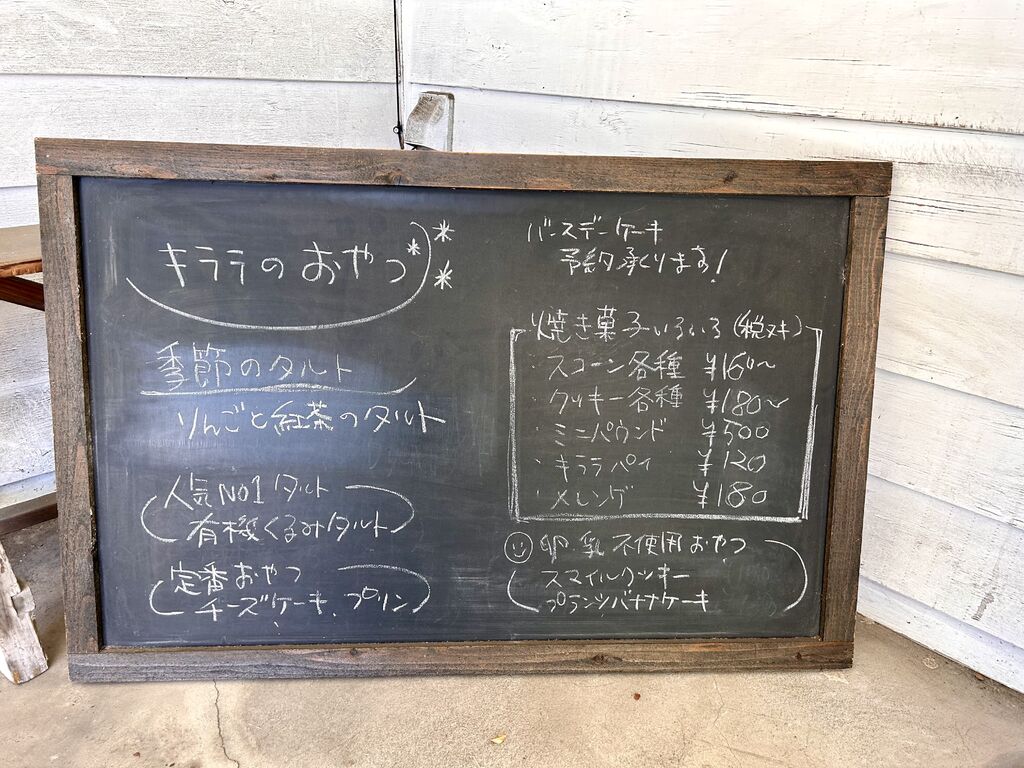 キララのおやつ
季節のタルト
りんごと紅茶のタルト
人気NO1タルト
有機くるみタルト
定番おやつ
チーズケーキ、プリン
バースデーケーキ
予約承ります!
焼き菓子いろいろ(税ヌキ)
・スコーン各種 ¥160〜
・クッキー各種 ¥180〜
・ミニパウンド ¥500
・キララパイ ¥120
・メレンゲ ¥180
卵・乳不使用おやつ
スマイルクッキー
プランツバナナケーキ